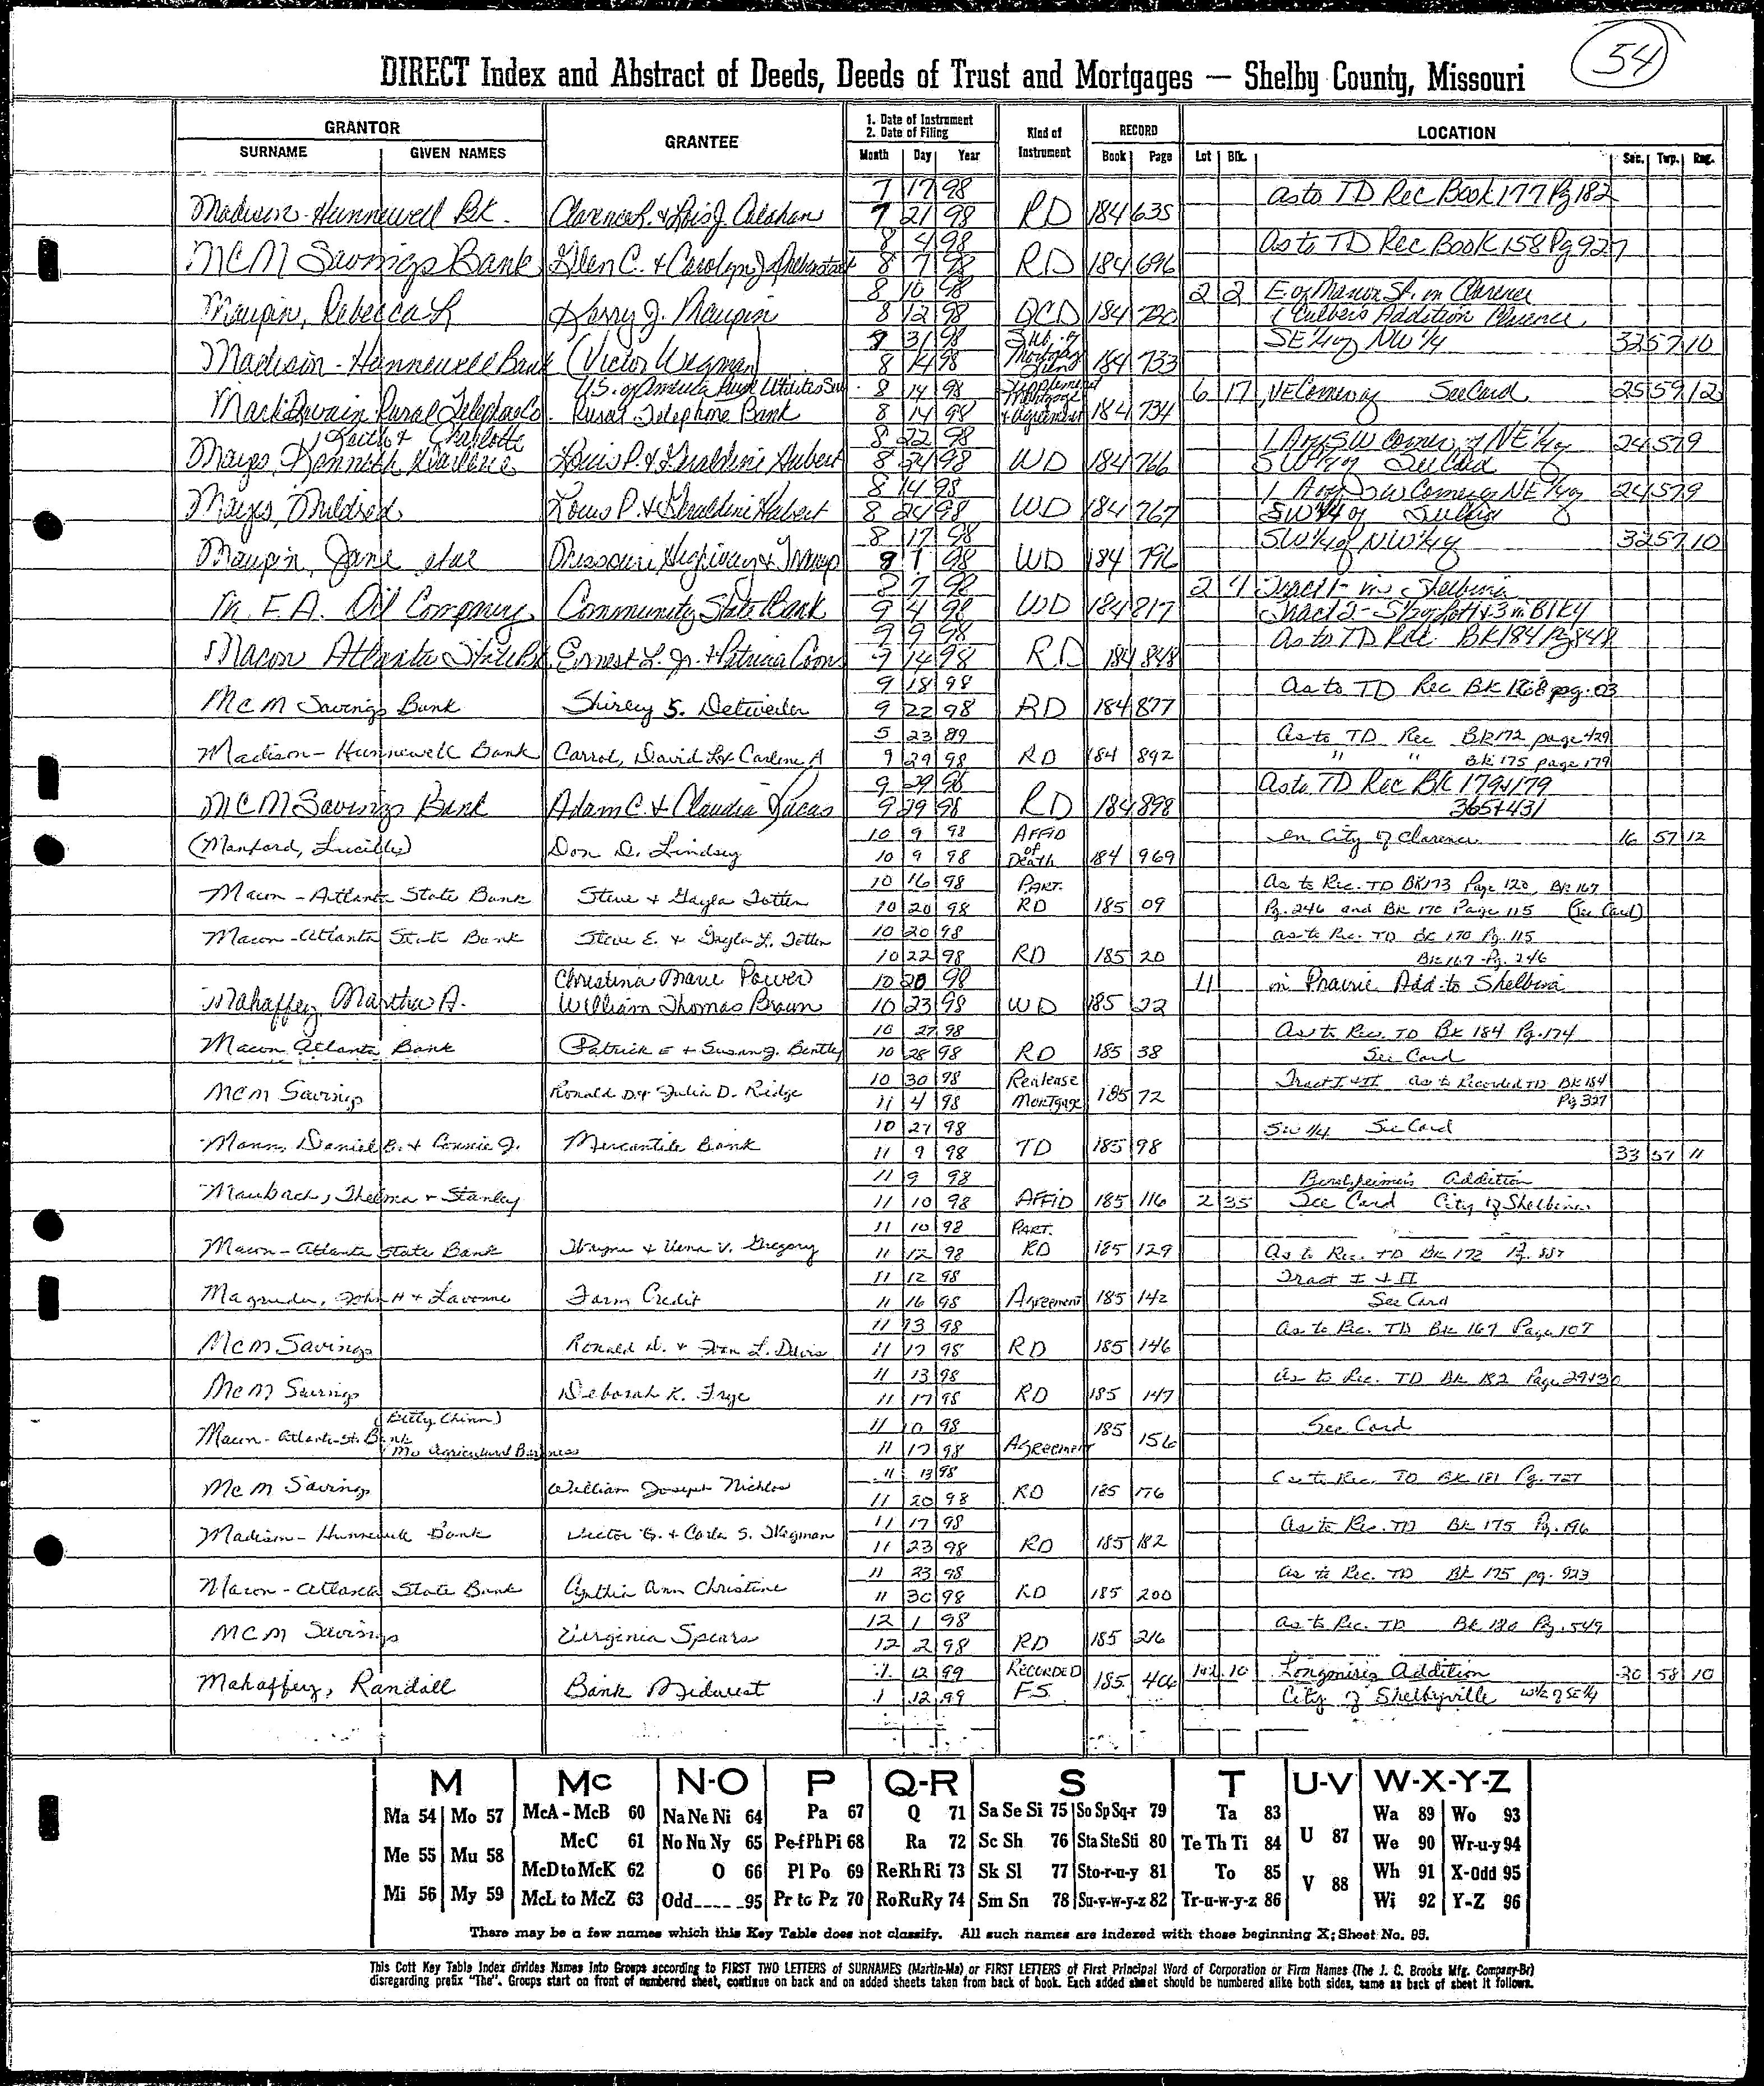 54
DIRECT Index and Abstract of Deeds, Deeds of Trust and Mortgages — Shelby County, Missouri
GRANTOR
SURNAME GIVEN NAMES
GRANTEE
1. Date of Instrument
2. Date of Filing
Month Day Year
Kind of Instrument
RECORD
Book Page
LOCATION
Lot Blk. Sec. Twp. Rng.
7 17 98 as to TD Rec Book 177 Pg 182
Madison-Hunnewell Bk. Clarence L. & Lois J. Calahan 7 21 98 RD 184 635
8 4 98 as to TD Rec Book 158 Pg 927
MCM Savings Bank Glen C. & Carolyn J 8 7 98 RD 184 696
8 10 98 2 2 E of Manor St. in Clarence
Maupin, Rebecca L Kerry J. Maupin 8 12 98 QCD 184 720 Culbers Addition Clarence
3 98 Sub. of SE 1/4 of NW 1/4 32 57 10
Madison-Hunnewell Bank (Victor Wegman) 8 14 98 Mortgage 184 733
U.S. of America Rural Utilities Ser. 8 14 98 Supplement Mortgage 6 17 NE Corner of See Card 25 59 12
Mark Twain Rural Telephone Co. Rural Telephone Bank 8 14 98 & Agreement 184 734
Keith & Charlotte 8 22 98 1 A of SW Corner of NE 1/4 of 24 57 9
Mayes, Kenneth & Louis P. & Geraldine Hubert 8 24 98 WD 184 766 SW 1/4 of See Card
8 14 98 1 A of SW Corner of NE 1/4 of 24 57 9
Mayes, Mildred Louis P. & Geraldine Hubert 8 24 98 WD 184 767 SW 1/4 of
8 17 98 SW 1/4 of NW 1/4 32 57 10
Maupin, Jane etal Missouri Highway & Transp 9 1 98 WD 184 796
8 7 98 2 4 Tract 1 - in Shelbina
M.F.A. Oil Company Community State Bank 9 4 98 WD 184 817 Tract 2 - S 1/2 of Lot 1 & 3 in Blk 4
9 9 98 as to TD Rec Bk 184 Pg 848
Macon Atlanta State Bk Ernest L. Jr. & Patricia Coons 9 14 98 RD 184 848
9 18 98 as to TD Rec Bk 168 pg. 03
MCM Savings Bank Shirley S. Detweiler 9 22 98 RD 184 877
5 23 89 as to TD Rec Bk 172 page 429
Madison-Hunnewell Bank Carrol, David L & Carlene A 9 29 98 RD 184 892 " " Bk 175 page 179
9 29 98 as to TD Rec Bk 179 & 179
MCM Savings Bank Adam C. & Claudia Lucas 9 29 98 RD 184 898 365 & 431
(Manford, Lucille) Don D. Lindsey 10 9 98 AFFID In City of Clarence 16 57 12
10 9 98 of Death 184 969
10 16 98 PART. As to Rec. TD Bk 173 Page 120, Bk 167
Macon-Atlanta State Bank Steve & Gayla Totten 10 20 98 RD 185 09 Pg. 246 and Bk 170 Page 115 (See Card)
Macon-Atlanta State Bank Steve E. & Gayla L. Totten 10 20 98 as to Rec. TD Bk 170 Pg. 115
10 22 98 RD 185 20 Bk 167 Pg. 246
Christina Marie Power 10 20 98 11 in Prairie Add. to Shelbina
Mahaffey, Martha A. William Thomas Brown 10 23 98 WD 185 22
10 27 98 As to Rec. TD Bk 184 Pg. 174
Macon Atlanta Bank Patrick E & Susan J. Bentley 10 28 98 RD 185 38 See Card
10 30 98 Realease Tract I & II as to Recorded TD Bk 184
MCM Savings Ronald D. & Julia D. Ridge 11 4 98 Mortgage 185 72 Pg 327
10 27 98 SW 1/4 See Card
Mann, Daniel B. & Connie J. Mercantile Bank 11 9 98 TD 185 98 33 57 11
11 9 98 Benjheimer's Addition
Maubach, Thelma & Stanley 11 10 98 AFFID 185 116 2 35 See Card City of Shelbina
11 10 98 PART.
Macon-Atlanta State Bank Wayne & Vena V. Gregory 11 12 98 RD 185 129 As to Rec. TD Bk 172 Pg. 887
11 12 98 Tract I & II
Magruder, John H & Lavonne Farm Credit 11 16 98 Agreement 185 142 See Card
11 13 98 As to Rec. TD Bk 167 Page 107
MCM Savings Ronald D. & Fran L. Davis 11 17 98 RD 185 146
11 13 98 as to Rec. TD Bk 182 Page 29 & 30
MCM Savings Deborah K. Frye 11 17 98 RD 185 147
(Betty Chinn) 11 10 98 185 See Card
Macon-Atlanta St. Bank Mo Agricultural Business 11 17 98 Agreement 156
11 13 98 as to Rec. TD Bk 181 Pg. 727
MCM Savings William Joseph Nichlos 11 20 98 RD 185 176
11 17 98 As to Rec. TD Bk 175 Pg. 196
Madison-Hunnewell Bank Victor G. & Carla S. Wegman 11 23 98 RD 185 182
11 23 98 as to Rec. TD Bk 175 pg. 923
Macon-Atlanta State Bank Cynthia Ann Christine 11 30 98 RD 185 200
12 1 98 as to Rec. TD Bk 180 Pg. 549
MCM Savings Virginia Spears 12 2 98 RD 185 216
1 12 99 RECORDED 1&2 10 Longmires Addition 30 58 10
Mahaffey, Randall Bank Midwest 1 12 99 F.S. 185 406 City of Shelbyville W 1/2 of SE 1/4
M Mc N-O P Q-R S T U-V W-X-Y-Z
Ma 54 Mo 57 McA - McB 60 Na Ne Ni 64 Pa 67 Q 71 Sa Se Si 75 So Sp Sq-r 79 Ta 83 Wa 89 Wo 93
Me 55 Mu 58 McC 61 No Nu Ny 65 Pe-f Ph Pi 68 Ra 72 Sc Sh 76 Sta Ste Sti 80 Te Th Ti 84 U 87 We 90 Wr-u-y 94
McD to McK 62 O 66 Pl Po 69 Re Rh Ri 73 Sk Sl 77 Sto-r-u-y 81 To 85 V 88 Wh 91 X-Odd 95
Mi 56 My 59 McL to McZ 63 Odd 95 Pr to Pz 70 Ro Ru Ry 74 Sm Sn 78 Su-v-w-y-z 82 Tr-u-w-y-z 86 Wi 92 Y-Z 96
There may be a few names which this Key Table does not classify. All such names are indexed with those beginning X; Sheet No. 95.
This Cott Key Table Index divides Names Into Groups according to FIRST TWO LETTERS of SURNAMES (Martin-Ma) or FIRST LETTERS of First Principal Word of Corporation or Firm Names (The J. C. Brooks Mfg. Company-Br)
disregarding prefix "The". Groups start on front of numbered sheet, continue on back and on added sheets taken from back of book. Each added sheet should be numbered alike both sides, same as back of sheet it follows.